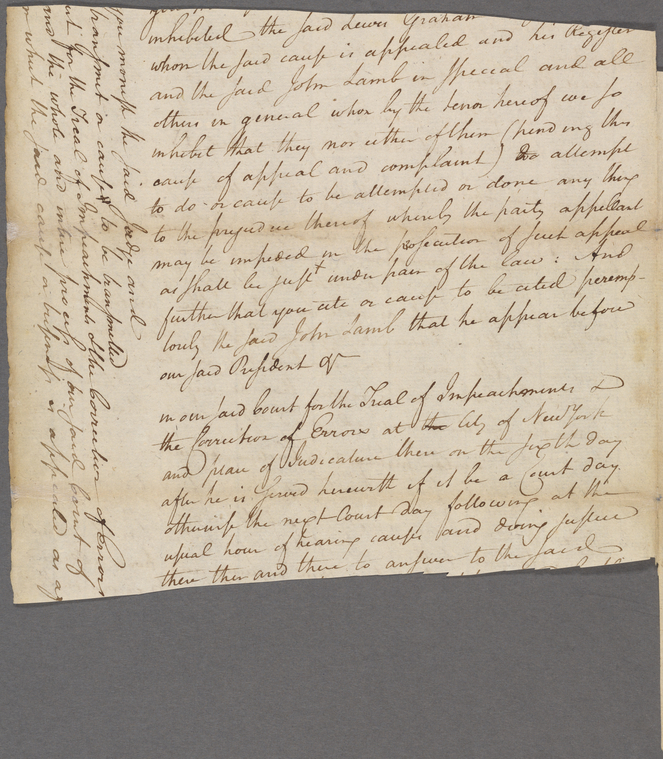 inhibited the said Lewis Graham
whom the said cause is appealed and his Register
and the said John Lamb in special and all
others in general whom by the tenor hereof we so
inhibit that they nor either of them (pending this
cause of appeal and complaint) Do attempt
to do or cause to be attempted or done any thing
to the prejudice thereof whereby the party appellant
may be impeded in the prosecution of such appeal
as shall be just under pain of the law: And
further that you cite or cause to be cited peremp-
torily the said John Lamb that he appear before
our said President &c
in our said Court for the Trial of Impeachments &
the Correction of Errors at the City of New York
and place of Judicature there on the sixth day
after he is served herewith if it be a Court day
otherwise the next Court day following at the
usual hour of hearing causes and doing justice
there then and there to answer to the said
you monish the said Judge and
transmit or cause to be transmitted
for the Trial of Impeachments & the Correction of Errors
and the whole and intire process of our said Court of
whom the said cause or business is appealed as